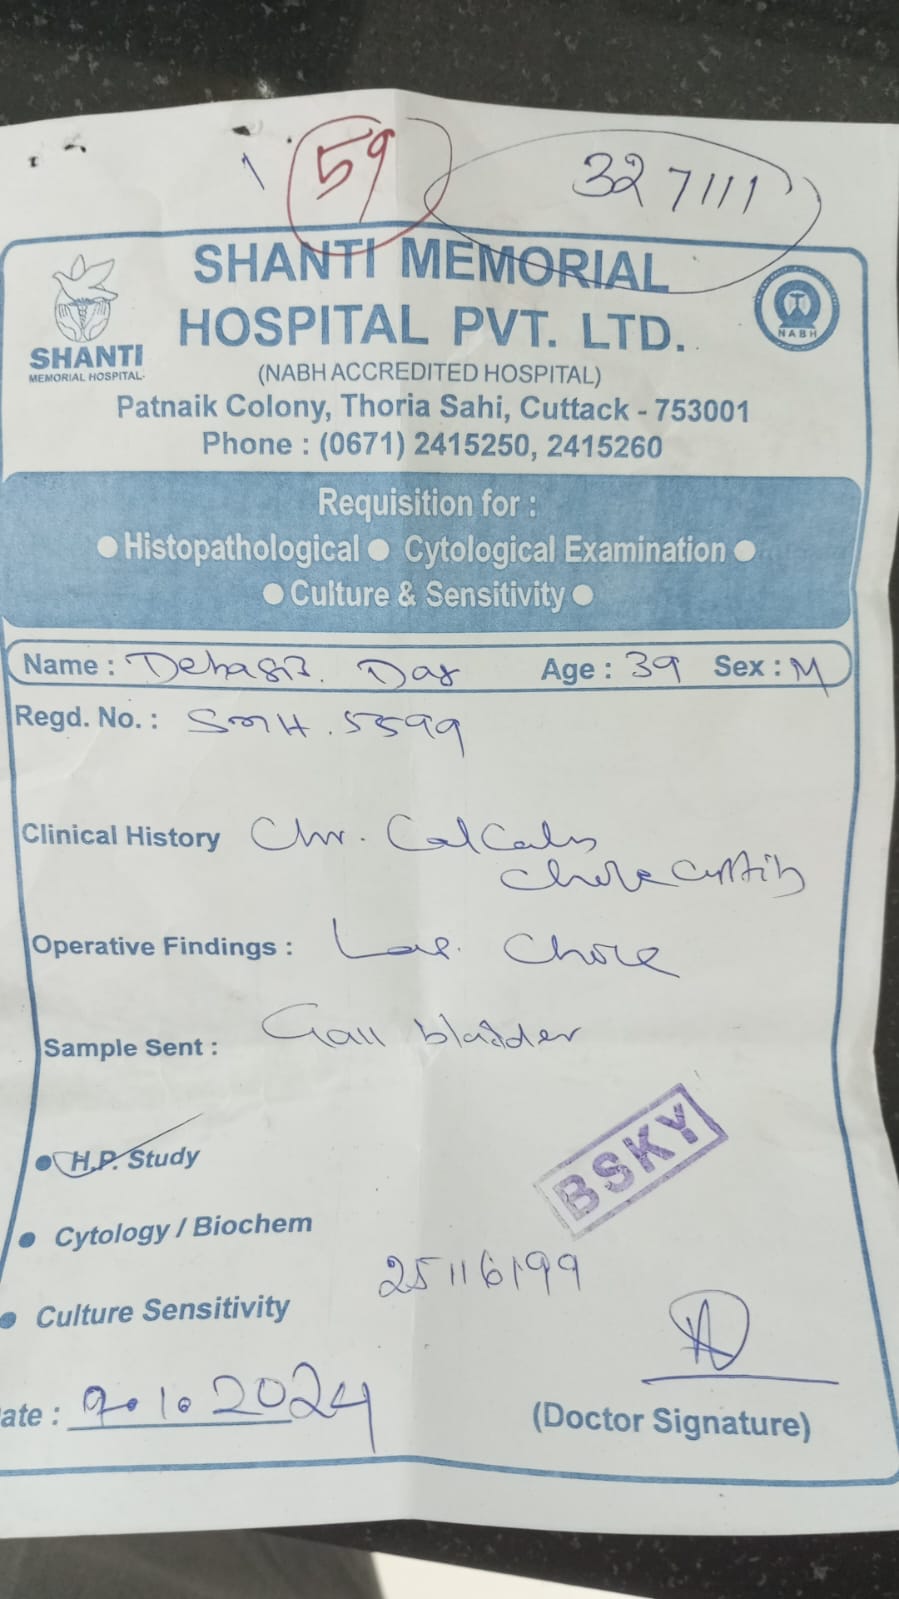 59
327111
SHANTI MEMORIAL
HOSPITAL PVT. LTD.
SHANTI
MEMORIAL HOSPITAL
NABH
(NABH ACCREDITED HOSPITAL)
Patnaik Colony, Thoria Sahi, Cuttack - 753001
Phone : (0671) 2415250, 2415260
Requisition for :
● Histopathological ● Cytological Examination ●
● Culture & Sensitivity ●
Name : Debasis. Das Age : 39 Sex : M
Regd. No. : SMH. 5599
Clinical History Chr. Calculus
Cholecystitis
Operative Findings : Lap. Chole
Sample Sent : Gall bladder
● H.P. Study
BSKY
● Cytology / Biochem
25116199
● Culture Sensitivity
ate : 9.1.2024
(Doctor Signature)